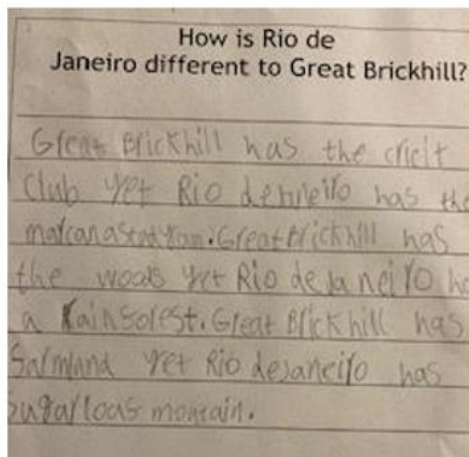 How is Rio de
Janeiro different to Great Brickhill?
Great Brickhill has the cricit
Club yet Rio dehneiro has the
marcanastatyom. Great brickhill has
the woods yet Rio de Janeiro ha
a Rainforest. Great Brickhill has
Farmland yet Rio dejaneiro has
sugarloaf montain.